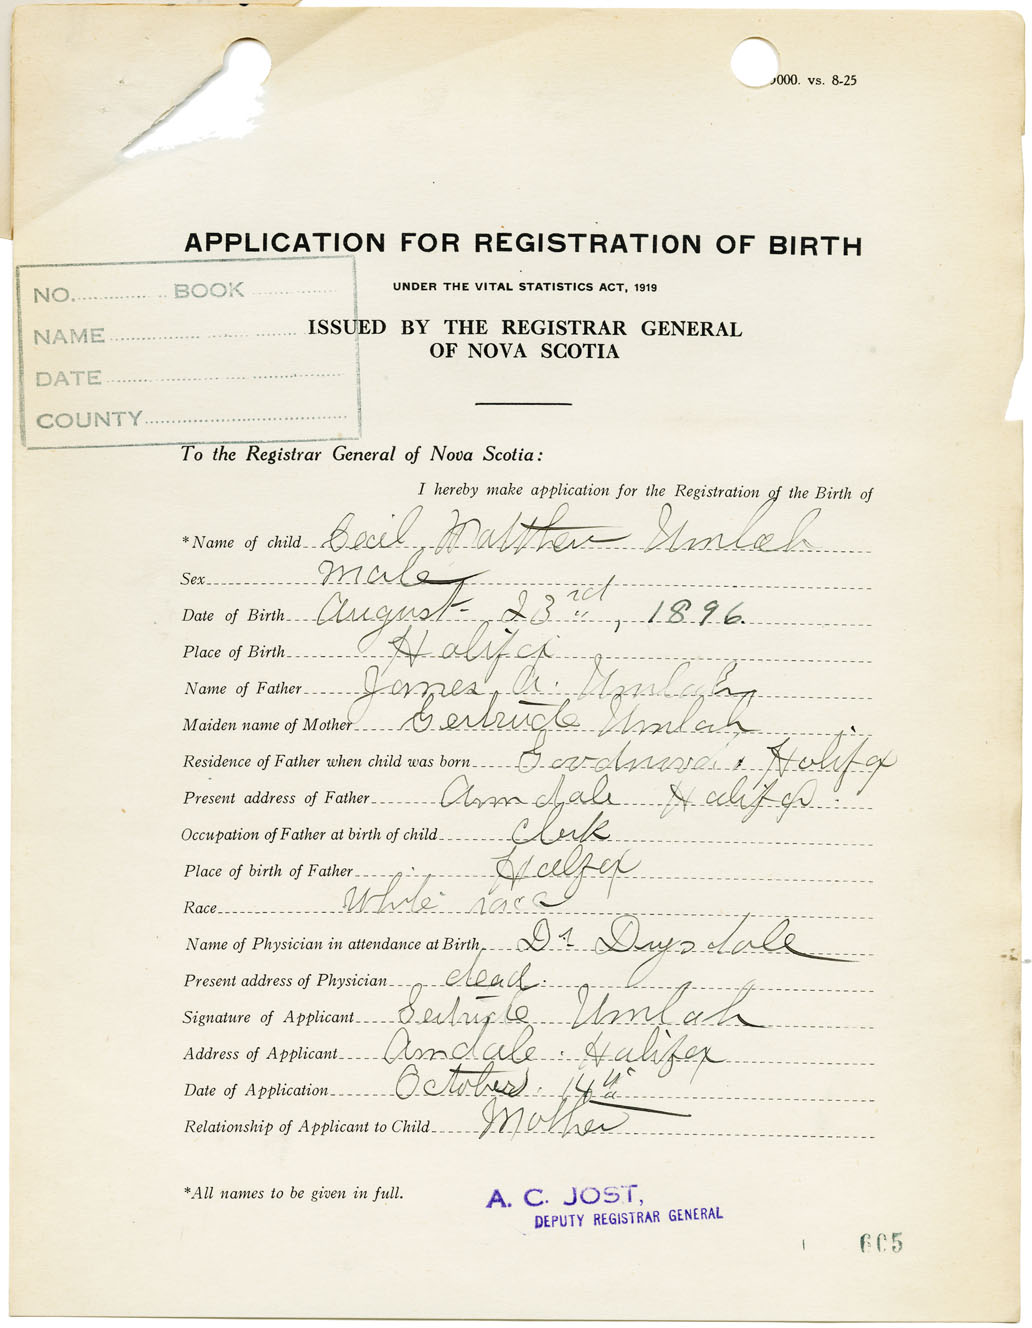 000. vs. 8-25
APPLICATION FOR REGISTRATION OF BIRTH
UNDER THE VITAL STATISTICS ACT, 1919
ISSUED BY THE REGISTRAR GENERAL
OF NOVA SCOTIA
NO. BOOK
NAME
DATE
COUNTY
To the Registrar General of Nova Scotia:
I hereby make application for the Registration of the Birth of
*Name of child Cecil Matthew Umlah
Sex male
Date of Birth August 23rd, 1896.
Place of Birth Halifax
Name of Father James A. Umlah
Maiden name of Mother Gertrude Umlah
Residence of Father when child was born Halifax
Present address of Father Armdale Halifax
Occupation of Father at birth of child Clerk
Place of birth of Father Halifax
Race White race
Name of Physician in attendance at Birth Dr Drysdale
Present address of Physician dead.
Signature of Applicant Gertrude Umlah
Address of Applicant Armdale. Halifax
Date of Application October 14th
Relationship of Applicant to Child Mother
*All names to be given in full.
A. C. JOST,
DEPUTY REGISTRAR GENERAL
605